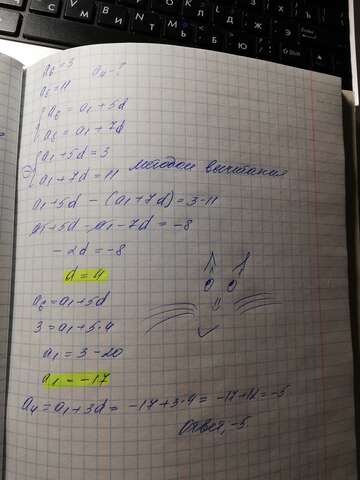 a6 = 3 a4 - ?
a8 = 11
a6 = a1 + 5d
a8 = a1 + 7d
a1 + 5d = 3
a1 + 7d = 11 методом вычитания
a1 + 5d - (a1 + 7d) = 3 - 11
a1 + 5d - a1 - 7d = -8
-2d = -8
d = 4
a6 = a1 + 5d
3 = a1 + 5·4
a1 = 3 - 20
a1 = -17
a4 = a1 + 3d = -17 + 3·4 = -17 + 12 = -5
Ответ: -5.